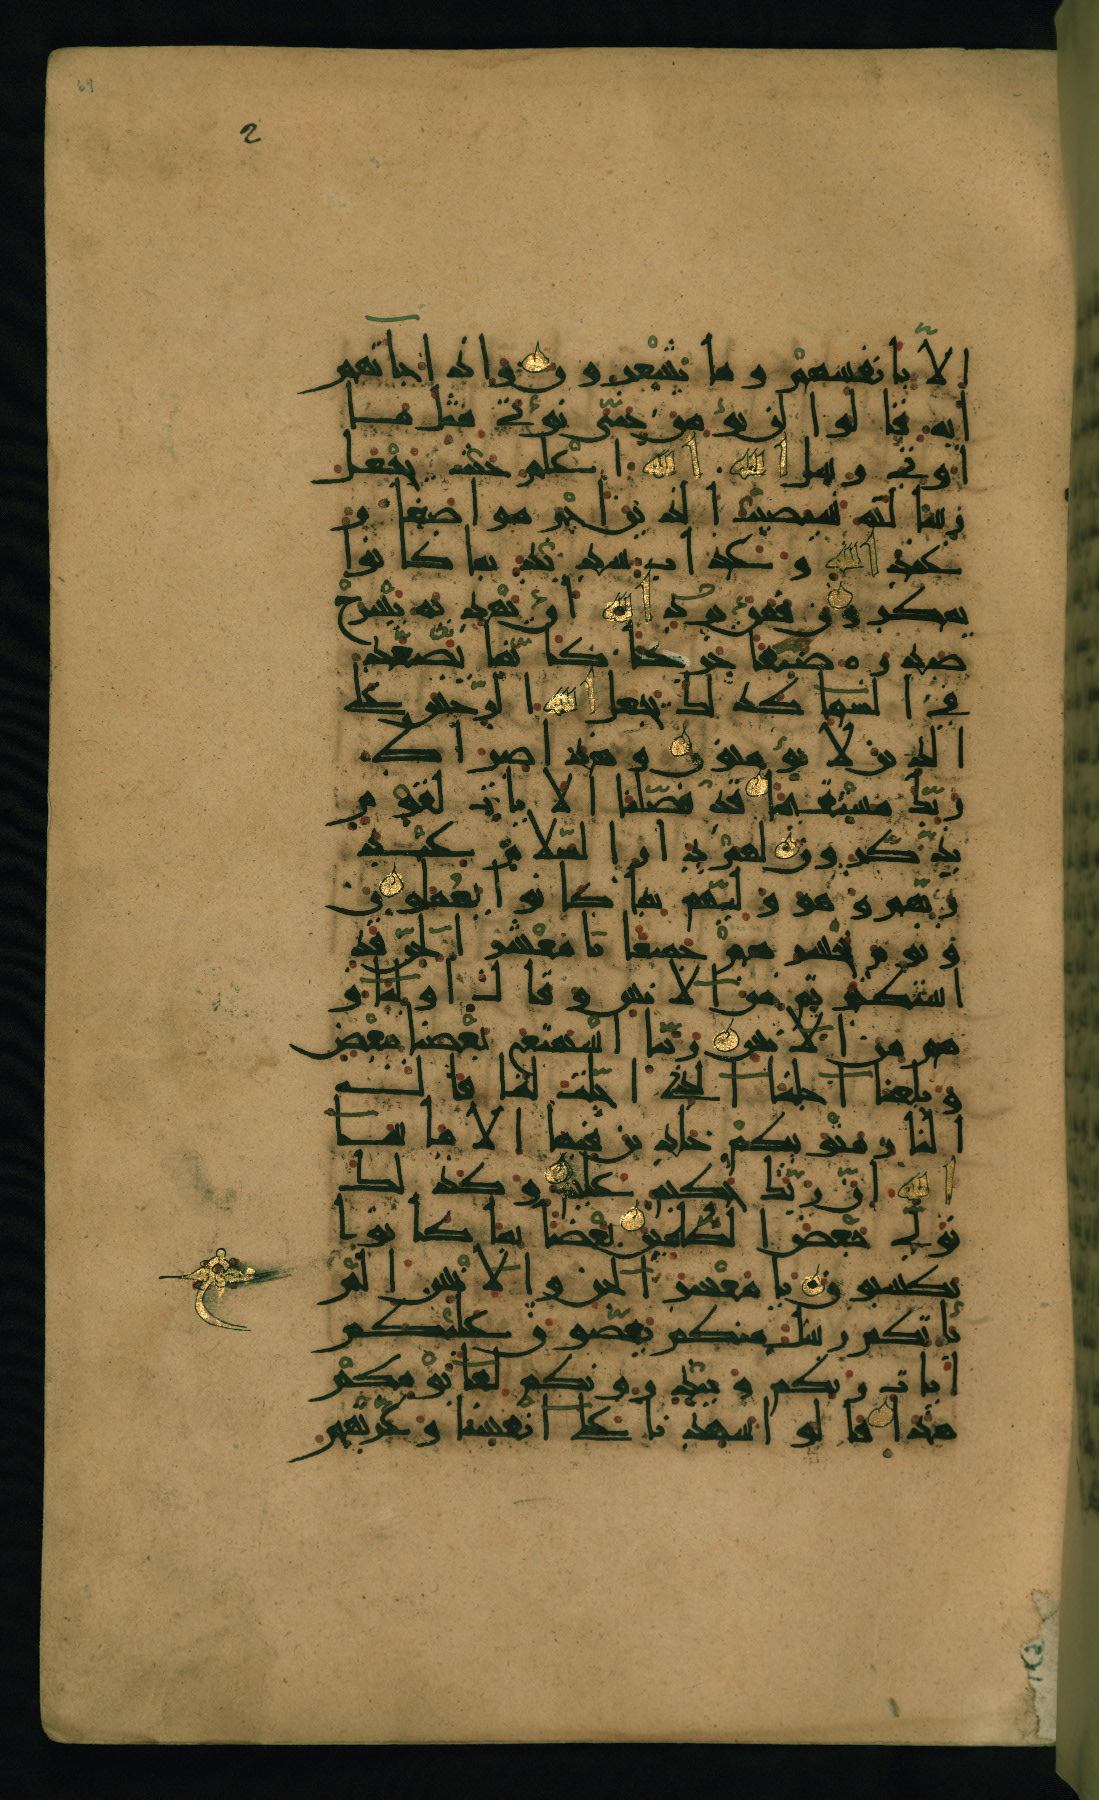 69
2
الا بانفسهم وما يشعرون واذا جاتهم
اية قالوا لن نؤمن حتى نؤتى مثل ما
اوتى رسل الله الله اعلم حيث يجعل
رسالته سيصيب الذين اجرموا صغار
عند الله وعذاب شديد بما كانوا
يمكرون فمن يرد الله ان يهديه يشرح
صدره ضيقا حرجا كانما يصعد
فى السما كذلك يجعل الله الرجس على
الذين لا يؤمنون وهذا صراط
ربك مستقيما قد فصلنا الايات لقوم
يذكرون لهم دار السلام عند
ربهم وهو وليهم بما كانوا يعملون
ويوم يحشرهم جميعا يا معشر الجن قد
استكثرتم من الانس وقال اولياو
هم من الانس ربنا استمتع بعضنا ببعض
وبلغنا اجلنا الذى اجلت لنا قال
النار مثويكم خلدين فيها الا ما شا
الله ان ربك حكيم عليم وكذلك
نولى بعض الظلمين بعضا بما كانوا
يكسبون يا معشر الجن والانس الم
ياتكم رسل منكم يقصون عليكم
اياتى وينذرونكم لقا يومكم
هذا قالوا شهدنا على انفسنا وغرتهم